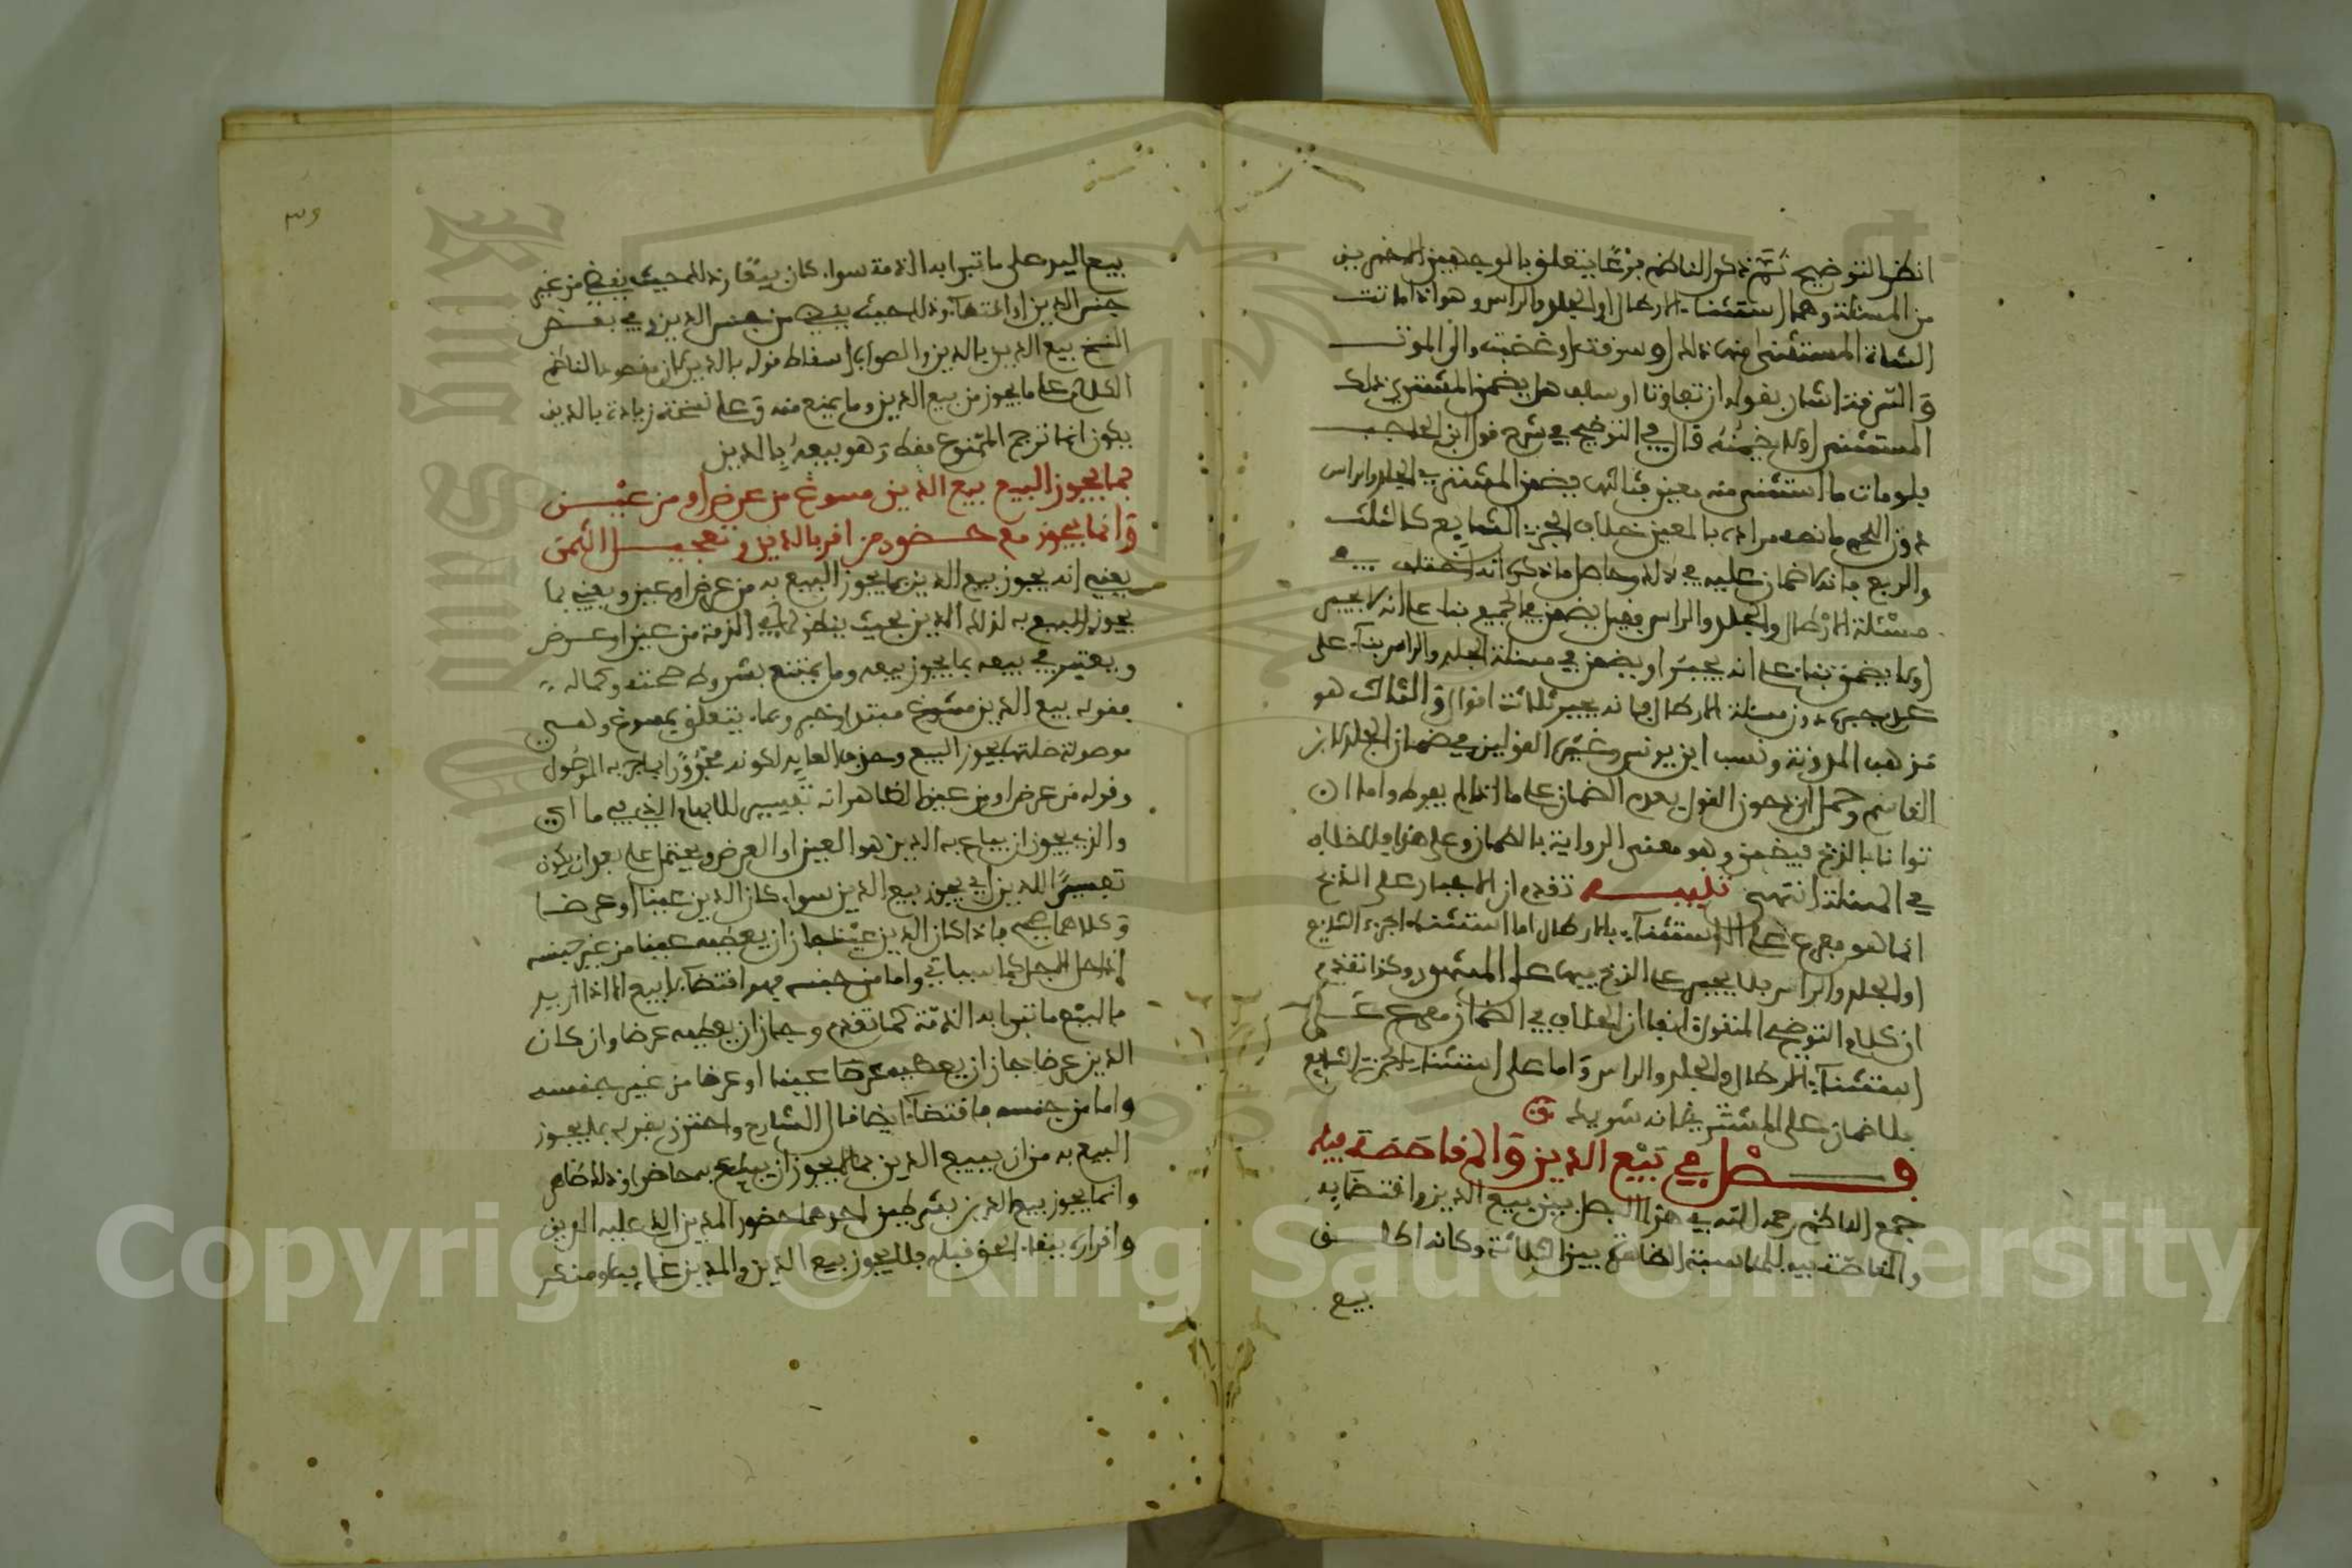 انظر التوضيح ثم ذكر الناظم فرعا يتعلق بالوجهين الاخيرين
من المسئلة وهما استثناء الارطال او الجلد والراس وهو اذا ماتت
الشاة المستثنى منها ذلك او سرقت او غصبت والى الموت
والسرقة اشار بقوله ان تفاوتا او سلب هل يضمن المشتري ذلك
المستثنى اولا يضمنه قال في التوضيح في شرح قول ابن الحاجب
فلو مات ما استثنى منه معين فثالثها يضمن المشتري الجلد والراس
دون اللحم ما نصه مراده بالمعين خلاف الجزء الشايع كالثلث
والربع فانه لا ضمان عليه في ذلك وحاصل ما ذكر انه اختلف في
مسئلة الارطال والجلد والراس فقيل يضمن في الجميع بناء على انه لا يجبر
اولا يضمن بناء على انه يجبر او يضمن في مسئلة الجلد والراس بناء على
عدم جبره دون مسئلة الارطال فانه يجبر ثلاثة اقوال والثالث هو
مذهب المدونة ونسب ابن يونس وغيره القولين في ضمان الجلد لابن
القاسم وحمل ابن محرز القول بعدم الضمان على ما اذا لم يفرط واما ان
توانا بالذبح فيضمن وهو معنى الرواية بالضمان وعلى هذا فلا خلاف
في المسئلة انتهى تنبيه تقدم ان الاجبار على الذبح
انما هو مفرع على الاستثناء بالارطال اما استثناء الجزء الشايع
او الجلد والراس فلا يجبر على الذبح فيها على المشهور وكذا تقدم
ان كلام التوضيح المنقول انفا ان الخلاف في الضمان مفرع على
استثناء الارطال والجلد والراس واما على استثناء الجزء الشايع
فلا ضمان على المشتري لانه شريك
فصل في بيع الدين والمقاصة فيه
جمع الناظم رحمه الله في هذا الفصل بين بيع الدين واقتضايه
والمقاصة فيه للمناسبة الظاهرة بين الثلاثة وكانه اطلق
بيع
٣٩
بيع الدين على ما تبرا به الذمة سواء كان بيعا وذلك حيث يقضي من غير
جنس الدين او اقتضاء وذلك حيث يقضي من جنس الدين وفي بعض
النسخ بيع الدين بالدين والصواب اسقاط قوله بالدين لان مقصود الناظم
الكلام على ما يجوز من بيع الدين وما يمنع منه وعلى نسخة زيادة بالدين
يكون انما ترجم للممنوع فقط وهو بيعه بالدين
بما يجوز البيع بيع الدين مسوغ من عرض او من عين
وانما يجوز مع حضور من اقر بالدين وتعجيل الثمن
يعني انه يجوز بيع الدين بما يجوز البيع به من عرض او عين ويعني بما
يجوز البيع به لذلك الدين بحيث ينظر لما في الذمة من عين او عرض
ويعتبر في بيعه بما يجوز بيعه وما يمتنع بشروط صحته وكماله
فقوله بيع الدين مسوغ مبتدا وخبر وبما يتعلق بمسوغ وهي
موصولة صلتها يجوز البيع وحذف العايد لكونه مجرورا بما جر به الموصول
وقوله من عرض او من عين الظاهر انه تفسير للابهام الذي في ما اي
والذي يجوز ان يباع به الدين هو العين او العرض ويحتمل على بعد ان يكون
تفسيرا للدين اي يجوز بيع الدين سواء كان الدين عينا او عرضا
وكلاهما صحيح فاذا كان الدين عينا جاز ان يعطيه عينا من غير جنسه
اذا حل الاجل كما سياتي واما من جنسه فهو اقتضاء لا بيع الا اذا اريد
بالبيع ما تبرا به الذمة كما تقدم وجاز ان يعطيه عرضا وان كان
الدين عرضا جاز ان يعطيه عرضا عينا او عرضا من غير جنسه
واما من جنسه فاقتضاء ايضا قال الشارح واحترز بقوله بما يجوز
البيع به من ان يبيع الدين بما لا يجوز ان يباع به حاضرا وذلك ظاهر
وانما يجوز بيع الدين بشرطين احدهما حضور المدين الذي عليه الدين
واقراره ببقاء الحق قبله فلا يجوز بيع الدين والمدين غايب او منكر
Copyright © King Saud University
King Saud University
1957